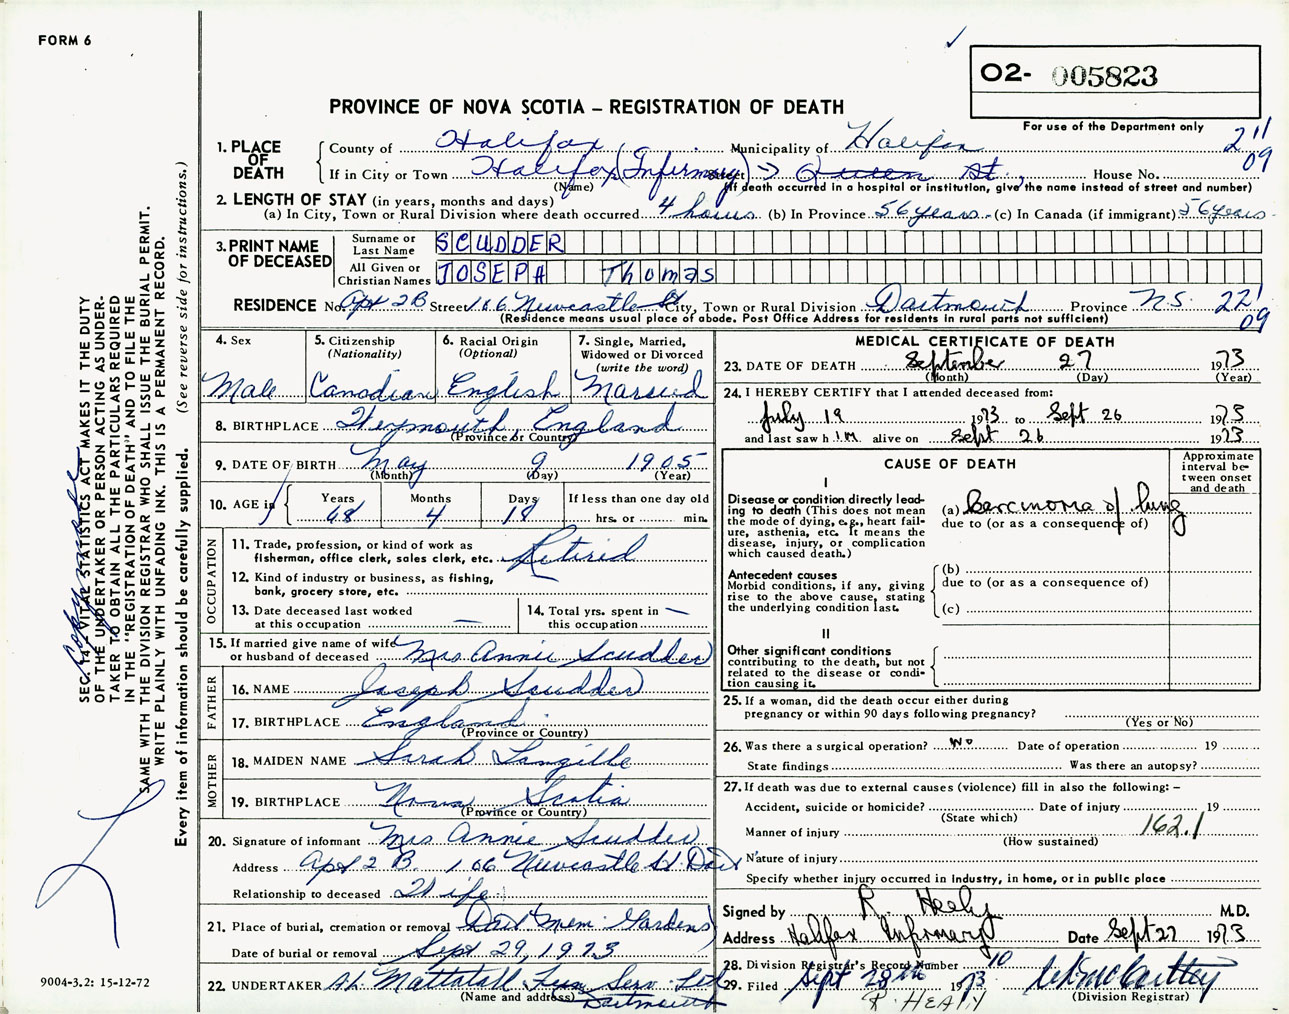 FORM 6
O2- 005823
PROVINCE OF NOVA SCOTIA – REGISTRATION OF DEATH
For use of the Department only
1. PLACE OF DEATH
County of Halifax Municipality of Halifax 211
09
If in City or Town Halifax (Infirmary) Street Queen St., House No.
(Name) (If death occurred in a hospital or institution, give the name instead of street and number)
2. LENGTH OF STAY (in years, months and days)
(a) In City, Town or Rural Division where death occurred 4 hours (b) In Province 56 years (c) In Canada (if immigrant) 56 years
3. PRINT NAME OF DECEASED
Surname or Last Name SCUDDER
All Given or Christian Names JOSEPH Thomas
RESIDENCE No. Apt 2B Street 106 Newcastle St City, Town or Rural Division Dartmouth Province N.S. 221
09
(Residence means usual place of abode. Post Office Address for residents in rural parts not sufficient)
4. Sex
Male
5. Citizenship
(Nationality)
Canadian
6. Racial Origin
(Optional)
English
7. Single, Married,
Widowed or Divorced
(write the word)
Married
8. BIRTHPLACE Weymouth, England
(Province or Country)
9. DATE OF BIRTH May 9 1905
(Month) (Day) (Year)
10. AGE in Years 68 Months 4 Days 18 If less than one day old
hrs. or min.
OCCUPATION
11. Trade, profession, or kind of work as
fisherman, office clerk, sales clerk, etc. Retired
12. Kind of industry or business, as fishing, —
bank, grocery store, etc.
13. Date deceased last worked
at this occupation —
14. Total yrs. spent in —
this occupation
15. If married give name of wife
or husband of deceased Mrs. Annie Scudder
FATHER
16. NAME Joseph Scudder
17. BIRTHPLACE England
(Province or Country)
MOTHER
18. MAIDEN NAME Sarah Langille
19. BIRTHPLACE Nova Scotia
(Province or Country)
20. Signature of informant Mrs Annie Scudder
Address Apt 2 B. 106 Newcastle St Dart
Relationship to deceased Wife
21. Place of burial, cremation or removal Dart Mem. Gardens
Date of burial or removal Sept 29, 1973
22. UNDERTAKER Mattatall Serv. Ltd
(Name and address) Dartmouth
MEDICAL CERTIFICATE OF DEATH
23. DATE OF DEATH September 27 1973
(Month) (Day) (Year)
24. I HEREBY CERTIFY that I attended deceased from:
July 19 1973 to Sept 26 1973
and last saw him alive on Sept 26 1973
CAUSE OF DEATH
Approximate
interval be-
tween onset
and death
I
Disease or condition directly lead-
ing to death (This does not mean
the mode of dying, e.g., heart fail-
ure, asthenia, etc. It means the
disease, injury, or complication
which caused death.)
(a) Carcinoma of lung
due to (or as a consequence of)
Antecedent causes
Morbid conditions, if any, giving
rise to the above cause, stating
the underlying condition last.
(b)
due to (or as a consequence of)
(c)
II
Other significant conditions
contributing to the death, but not
related to the disease or condi-
tion causing it.
25. If a woman, did the death occur either during
pregnancy or within 90 days following pregnancy?
(Yes or No)
26. Was there a surgical operation? No Date of operation 19
State findings Was there an autopsy?
27. If death was due to external causes (violence) fill in also the following: –
Accident, suicide or homicide? Date of injury 19
(State which)
Manner of injury 162.1
(How sustained)
Nature of injury
Specify whether injury occurred in industry, in home, or in public place
Signed by R. Healy M.D.
Address Halifax Infirmary Date Sept 27 1973
28. Division Registrar's Record Number 10
29. Filed Sept 28th 1973
R HEALY (Division Registrar)
SEC. 14 - VITAL STATISTICS ACT MAKES IT THE DUTY
OF THE UNDERTAKER OR PERSON ACTING AS UNDER-
TAKER TO OBTAIN ALL THE PARTICULARS REQUIRED
IN THE "REGISTRATION OF DEATH" AND TO FILE THE
SAME WITH THE DIVISION REGISTRAR WHO SHALL ISSUE THE BURIAL PERMIT.
WRITE PLAINLY WITH UNFADING INK. THIS IS A PERMANENT RECORD.
Every item of information should be carefully supplied. (See reverse side for instructions.)
9004-3.2: 15-12-72